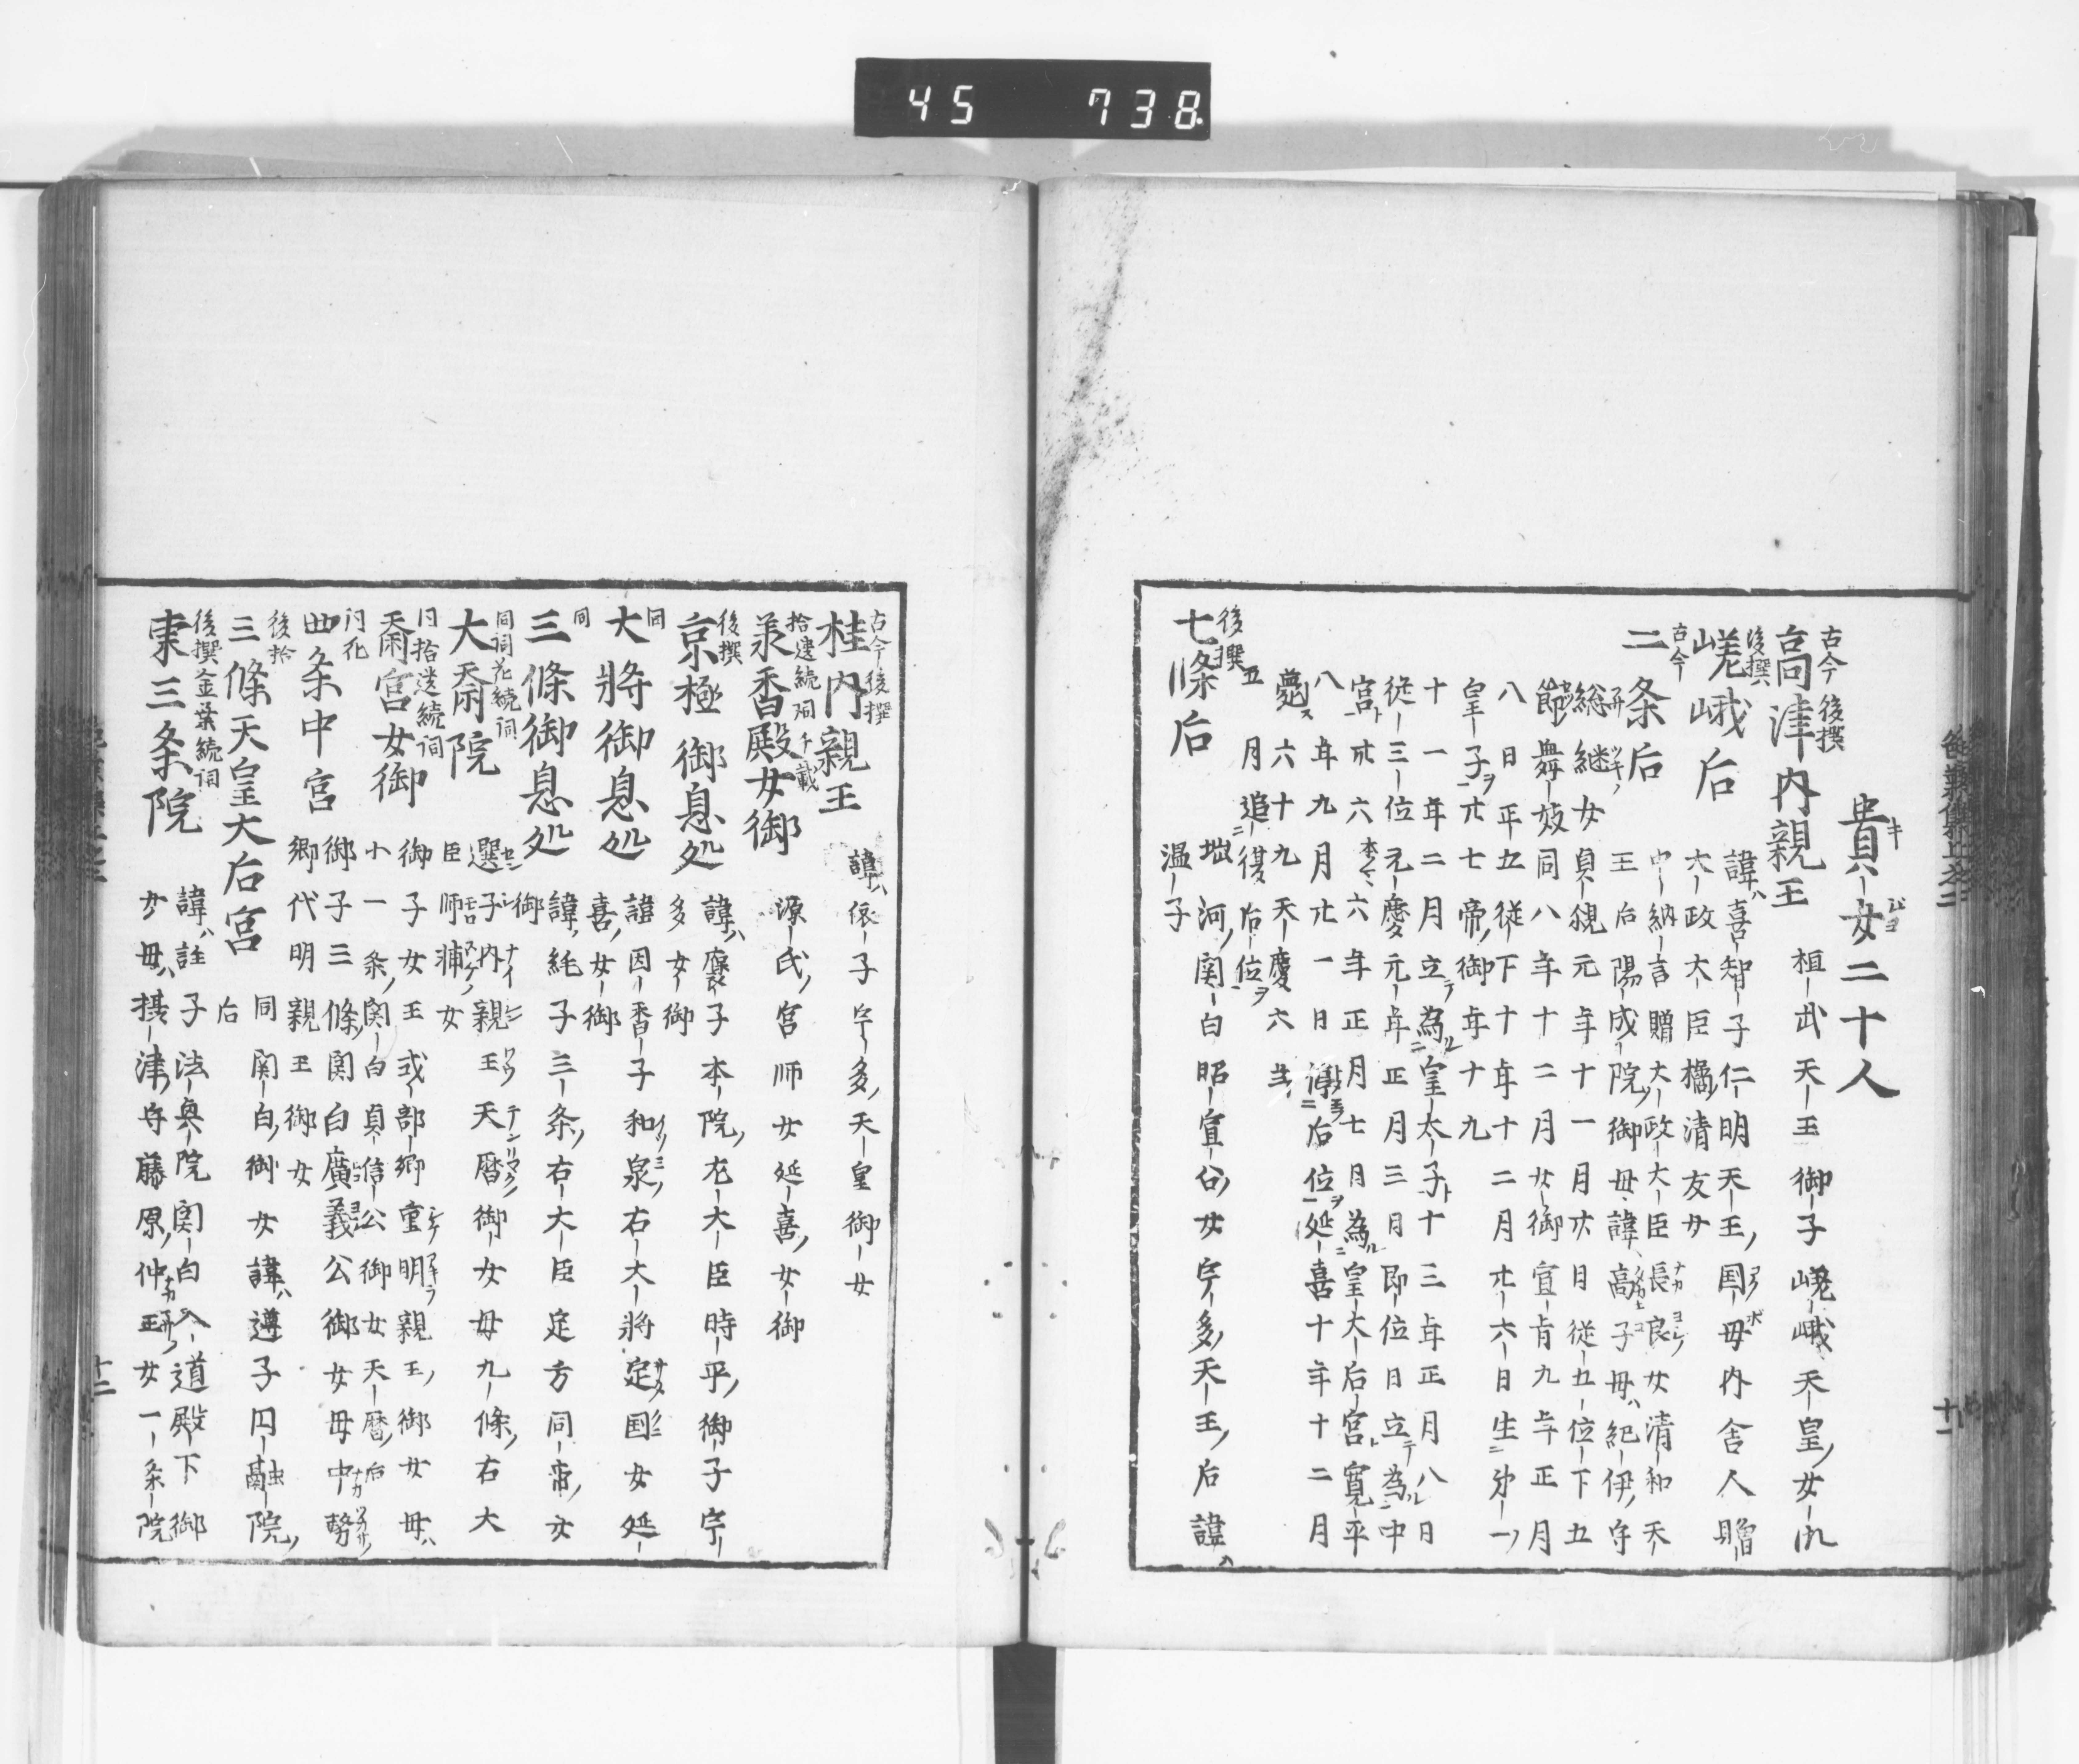 45 738
貴女二十人
古今 後撰
高津内親王
桓武天王御子嵯峨天皇女
後撰
嵯峨后
諱喜智子仁明天王国母内舎人贈
大政大臣橘清友女
古今
二条后
中納言贈大政大臣長良女清和天
王后陽成院御母諱高子母紀伊守
総継女貞観元年十一月廿日従五位下五
節舞妓同八年十二月女御宣旨九年正月
八日正五従下十年十二月廿六日生第一
皇子廿七帝御年十九
十一年二月立為皇太子十三年正月八日
従三位元慶元年正月三日即位日立為中
宮卅六六年正月七日為皇太后宮寛平
八年九月廿一日停后位延喜十年十二月
薨六十九天慶六年
五月追復后位
後撰
七條后
堀河関白昭宣公女宇多天王后諱
温子
古今後撰
桂内親王
諱依子宇多天皇御女
拾遺続詞千載
承香殿女御
源氏宮師女延喜女御
後撰
京極御息処
諱褒子本院左大臣時平御子宇
多女御
同
大將御息処
諱因香子和泉右大將定国女延
喜女御
同
三條御息処
諱純子三条右大臣定方同帝女
御
同詞花続詞
大斎院
選子内親王天暦御女母九條右大
臣師浦女
同拾遺続詞
斎宮女御
御子女王式部卿重明親王御女母
十一条関白貞信公御女天暦后
同花
四条中宮
御子三條関白廣義公御女母中務
卿代明親王御女
後拾
三條天皇大后宮
同関白御女諱遵子円融院
后
後撰金葉続詞
東三条院
諱詮子法興院関白入道殿下御
女母摂津守藤原仲正女一条院
十一
十二